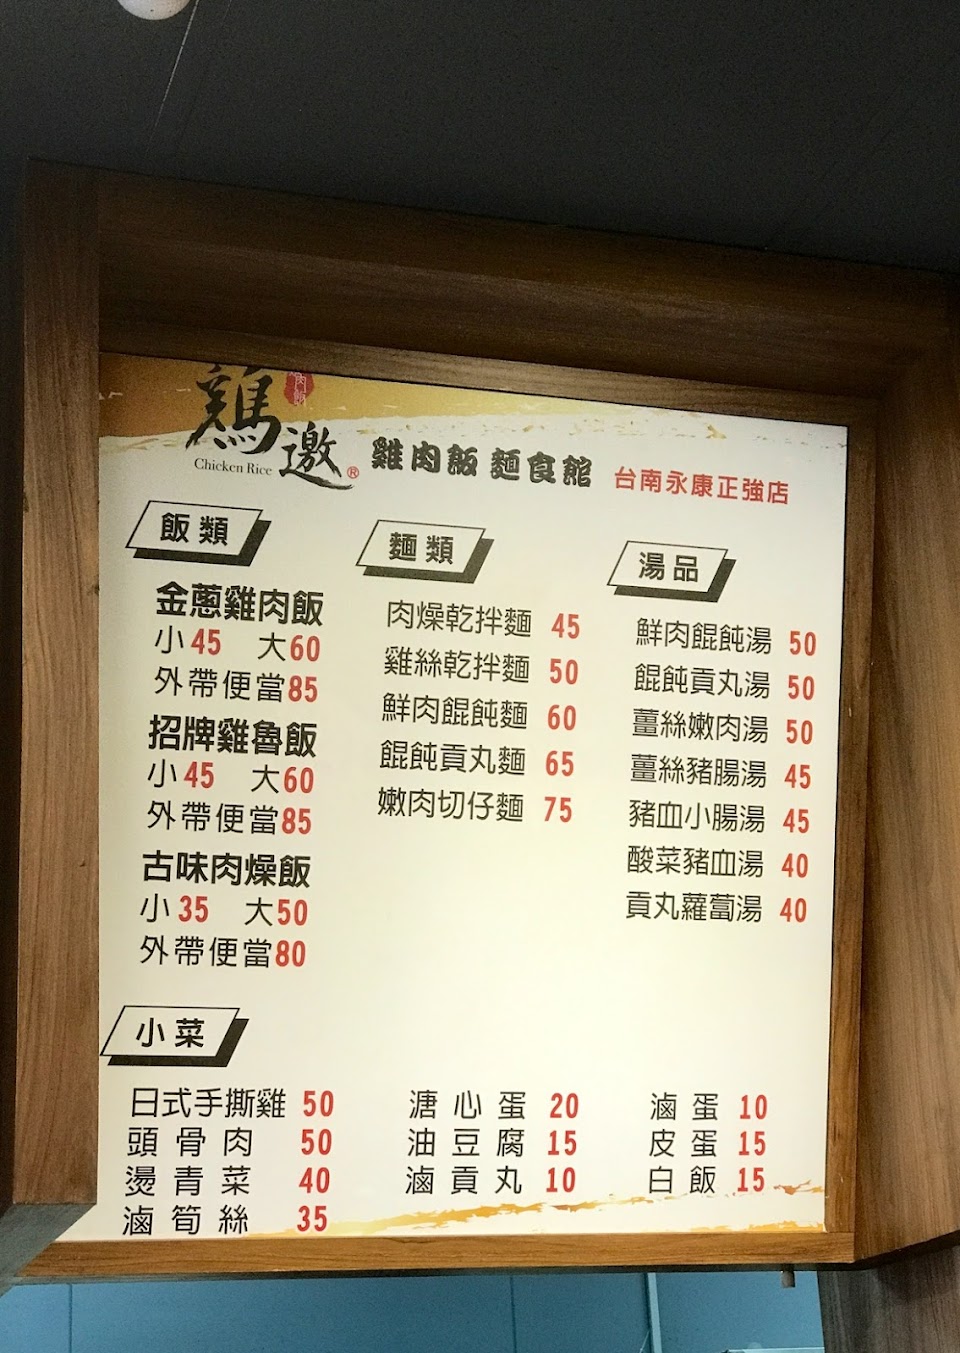 鷄邀
肉飯
Chicken Rice
®
雞肉飯 麵食館
台南永康正強店
飯類
金蔥雞肉飯
小45 大60
外帶便當85
招牌雞魯飯
小45 大60
外帶便當85
古味肉燥飯
小35 大50
外帶便當80
麵類
肉燥乾拌麵 45
雞絲乾拌麵 50
鮮肉餛飩麵 60
餛飩貢丸麵 65
嫩肉切仔麵 75
湯品
鮮肉餛飩湯 50
餛飩貢丸湯 50
薑絲嫩肉湯 50
薑絲豬腸湯 45
豬血小腸湯 45
酸菜豬血湯 40
貢丸蘿蔔湯 40
小菜
日式手撕雞 50
頭骨肉 50
燙青菜 40
滷筍絲 35
溏心蛋 20
油豆腐 15
滷貢丸 10
滷蛋 10
皮蛋 15
白飯 15